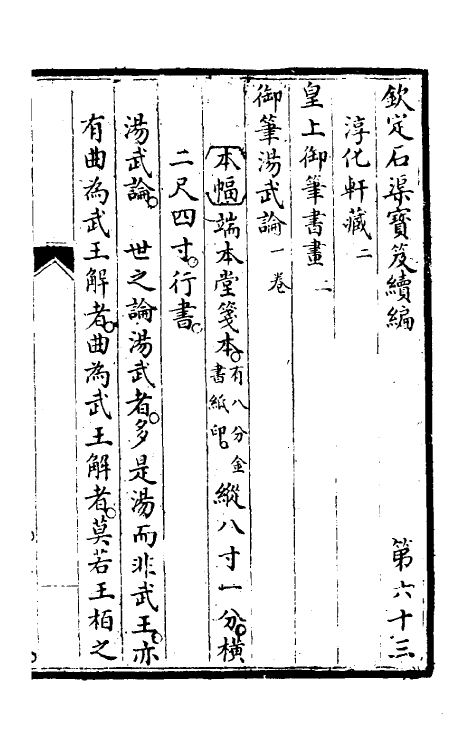 欽定石渠寶笈續編 第六十三
淳化軒藏二
皇上御筆書畫二
御筆湯武論一卷
本幅端本堂箋本有八分金書紙印縱八寸一分橫
二尺四寸行書
湯武論 世之論湯武者多是湯而非武王亦
有曲為武王解者曲為武王解者莫若王柏之